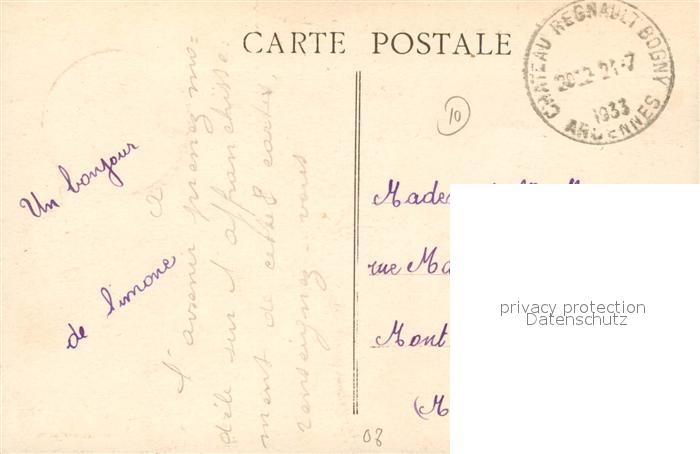 CARTE POSTALE
CHATEAU REGNAULT BOGNY
20 12 21-7
1933
ARDENNES
10
Un bonjour
de Simone
A
l'avenir prenez mo-
dèle sur l'affranchisse-
ment de cette carte
renseignez-vous
Made
rue Ma
Mont
(M
03
privacy protection
Datenschutz